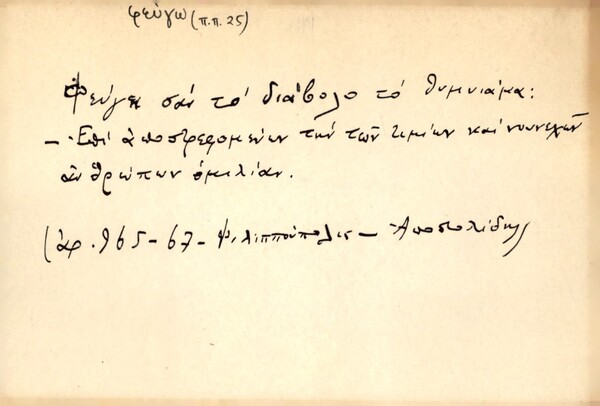 φεύγω (π.π. 25)
Φεύγει σαν το διάβολο τό θυμνιάμα:
- Ἐπί ἀποστρεφομένων τήν τῶν τιμίων καί νουνεχῶν
ἀνθρώπων ὁμιλίαν.
(ἀρ. 965-67- Φιλιππούπολις - Ἀποστολίδης